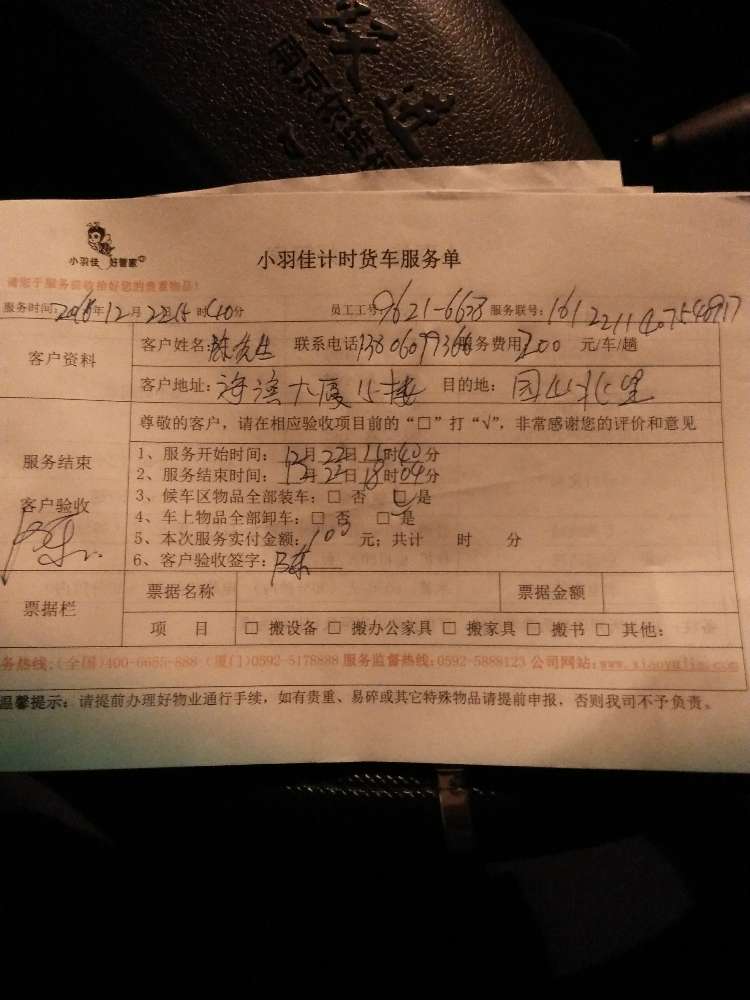 小羽佳 好管家
小羽佳计时货车服务单
请您于服务前收拾好您的贵重物品！
服务时间：2016年12月22日15时40分 员工工号9621-6638 服务联号：161221140754
客户资料
客户姓名：陈先生 联系电话 服务费用 200 元/车/趟
客户地址： 大厦 15楼 目的地： 团山北里
尊敬的客户，请在相应验收项目前的“□”打“√”，非常感谢您的评价和意见
服务结束
客户验收
陈
1、服务开始时间：12月22日15时40分
2、服务结束时间：12月22日18时04分
3、候车区物品全部装车：□ 否 □ 是
4、车上物品全部卸车：□ 否 □ 是
5、本次服务实付金额：100 元；共计 时 分
6、客户验收签字：陈
票据栏
票据名称 票据金额
项 目 □ 搬设备 □ 搬办公家具 □ 搬家具 □ 搬书 □ 其他：
务热线：(全国)400-6685-888（厦门)0592-5178888 服务监督热线：0592-5888123 公司网站：www.xiaoyujia.com
温馨提示：请提前办理好物业通行手续，如有贵重、易碎或其它特殊物品请提前申报，否则我司不予负责。